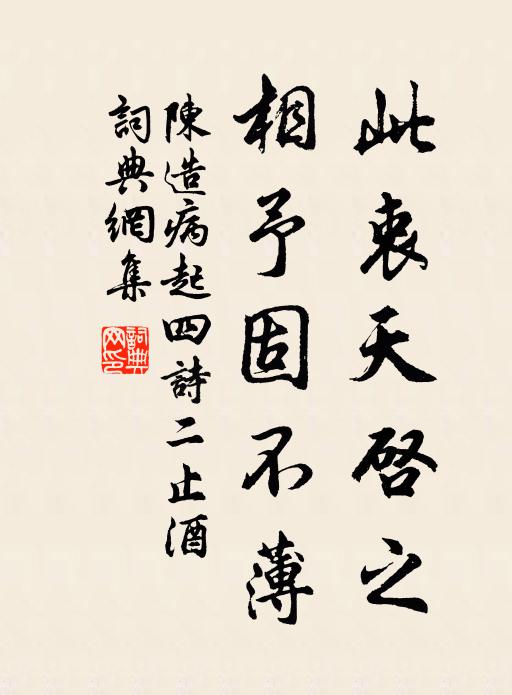 此衷天啓之
相予固不薄
陳造病起四詩二止酒
詞典網集
詞典网印